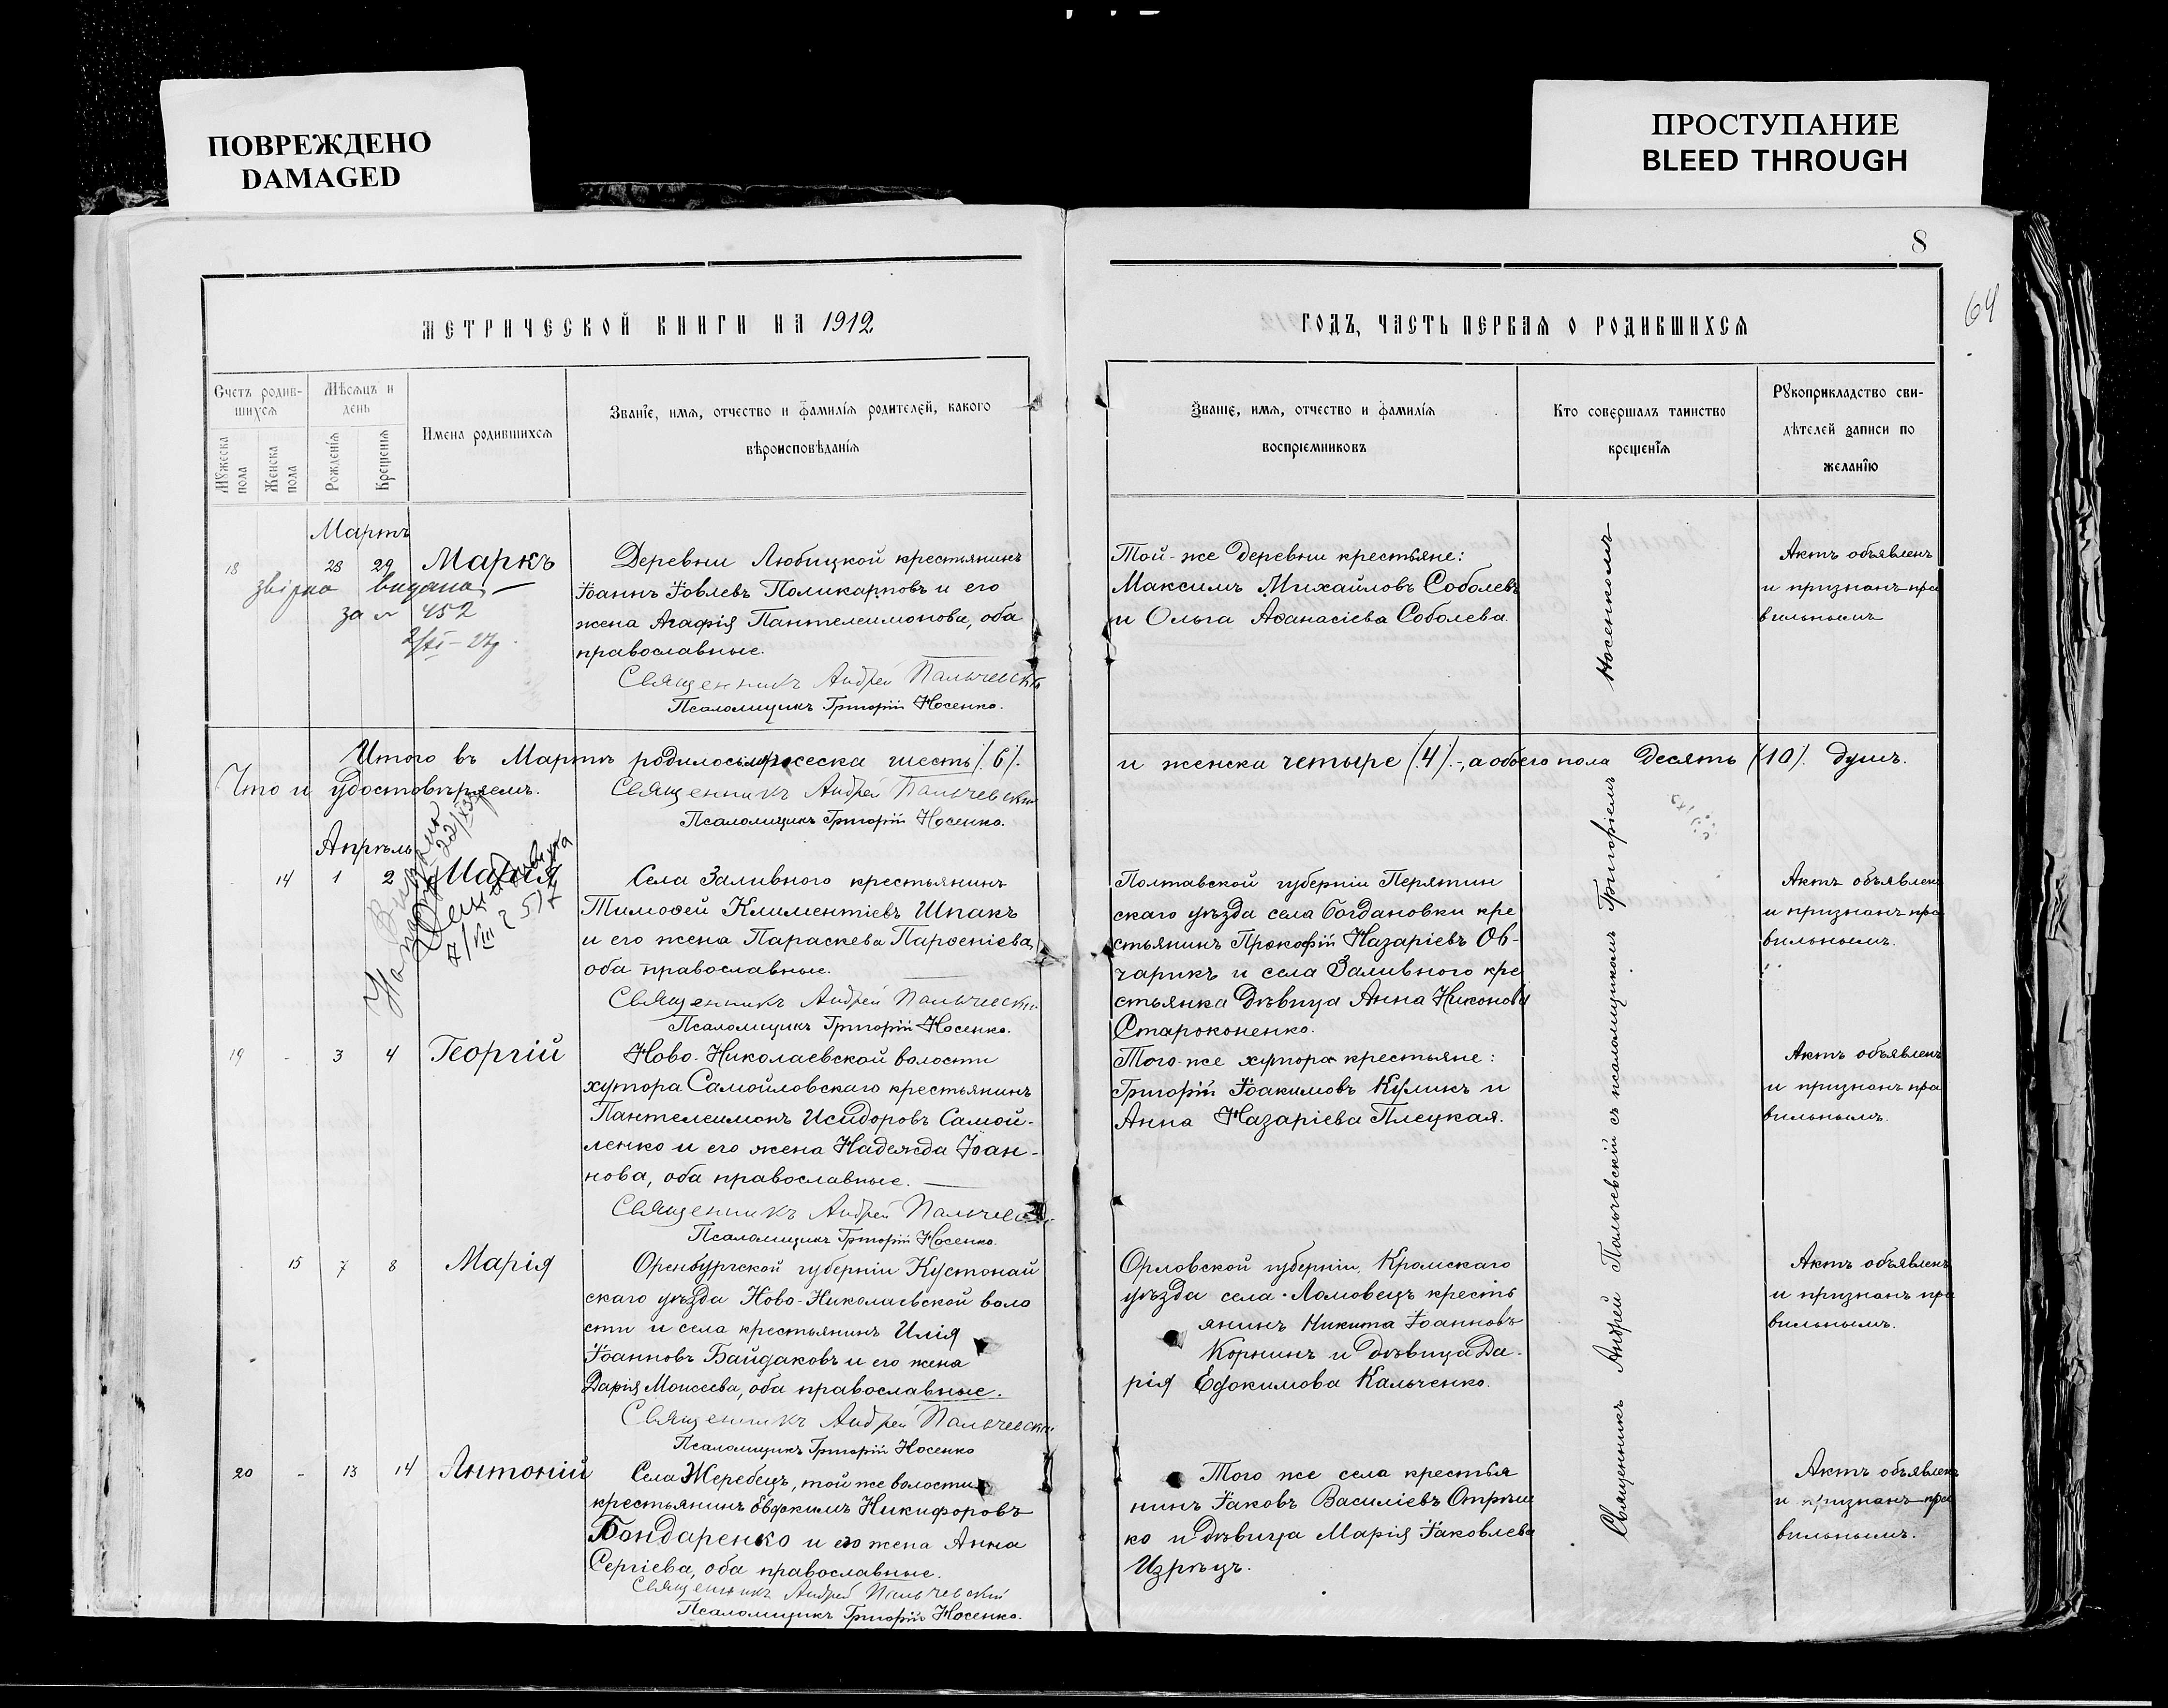 ПОВРЕЖДЕНО
DAMAGED
ПРОСТУПАНИЕ
BLEED THROUGH
8
64
МЕТРИЧЕСКОЙ КНИГИ НА 1912
ГОДЪ, ЧАСТЬ ПЕРВАЯ О РОДИВШИХСЯ
Счетъ родив-
шихся
Мужеска
пола
Женска
пола
Мѣсяцъ и
день
Рожденія
Крещенія
Имена родившихся
Званіе, имя, отчество и фамилія родителей, какого
вѣроисповѣданія
Званіе, имя, отчество и фамилія
воспріемниковъ
Кто совершалъ таинство
крещенія
Рукоприкладство сви-
дѣтелей записи по
желанію
Мартъ
18 28 29 Маркъ
видана
за № 452
Деревни Любицкой крестьянинъ
Іоаннъ Іовлевъ Поликарповъ и его
жена Агафія Пантелеимонова, оба
православные.
Священникъ Андрей Пальчевскій
Псаломщикъ Григорій Носенко.
Той-же деревни крестьяне:
Максимъ Михайловъ Соболевъ
и Ольга Аѳанасіева Соболева.
Носенкомъ
Актъ объявленъ
и признанъ пра
вильнымъ
Итого въ Мартѣ родилось мужеска шесть /6/.
и женска четыре /4/.-, а обоего пола Десять /10/. душъ.
Что и удостовѣряемъ.
Священникъ Андрей Пальчевскій
Псаломщикъ Григорій Носенко.
Апрѣль
14 1 2 Марія
Села Заливного крестьянинъ
Тимоѳей Климентіевъ Шпакъ
и его жена Параскева Парѳеніева,
оба православные.
Священникъ Андрей Пальчевскій
Псаломщикъ Григорій Носенко.
Полтавской губерніи Пирятин
скаго уѣзда села Богдановки кре
стьянинъ Прокофій Назаріевъ Ов-
чарикъ и села Заливного кре
стьянка дѣвица Анна Никонова
Староконенко.
Актъ объявленъ
и признанъ пра
вильнымъ.
19 - 3 4 Георгій
Ново-Николаевской волости
хутора Самойловскаго крестьянинъ
Пантелеимонъ Исидоровъ Самой-
ленко и его жена Надежда Іоан-
нова, оба православные.
Священникъ Андрей Пальчевскій
Псаломщикъ Григорій Носенко.
Того-же хутора крестьяне:
Григорій Іоакимовъ Куликъ и
Анна Назаріева Плецкая.
Актъ объявленъ
и признанъ пра
вильнымъ.
15 7 8 Марія
Оренбургской губерніи Кустонай
скаго уѣзда Ново-Николаевской воло
сти и села крестьянинъ Илія
Іоанновъ Байдаковъ и его жена
Дарія Моисеева, оба православные.
Священникъ Андрей Пальчевскій
Псаломщикъ Григорій Носенко
Орловской губерніи, Кромскаго
уѣзда села Ломовецъ кресть
янинъ Никита Іоанновъ
Корнинъ и дѣвица Да-
рія Евдокимова Кальченко.
Актъ объявленъ
и признанъ пра
вильнымъ.
20 - 13 14 Антоній
Села Жеребецъ, той же волости
крестьянинъ Евдокимъ Никифоровъ
Бондаренко и его жена Анна
Сергіева, оба православные.
Священникъ Андрей Пальчевскій
Псаломщикъ Григорій Носенко.
Того же села крестья
нинъ Іаковъ Василіевъ Отрѣш
ко и дѣвица Марія Іаковлева
Изрѣцъ.
Священникъ Андрей Пальчевскій съ псаломщикомъ Григоріемъ
Актъ объявленъ
и признанъ пра
вильнымъ.